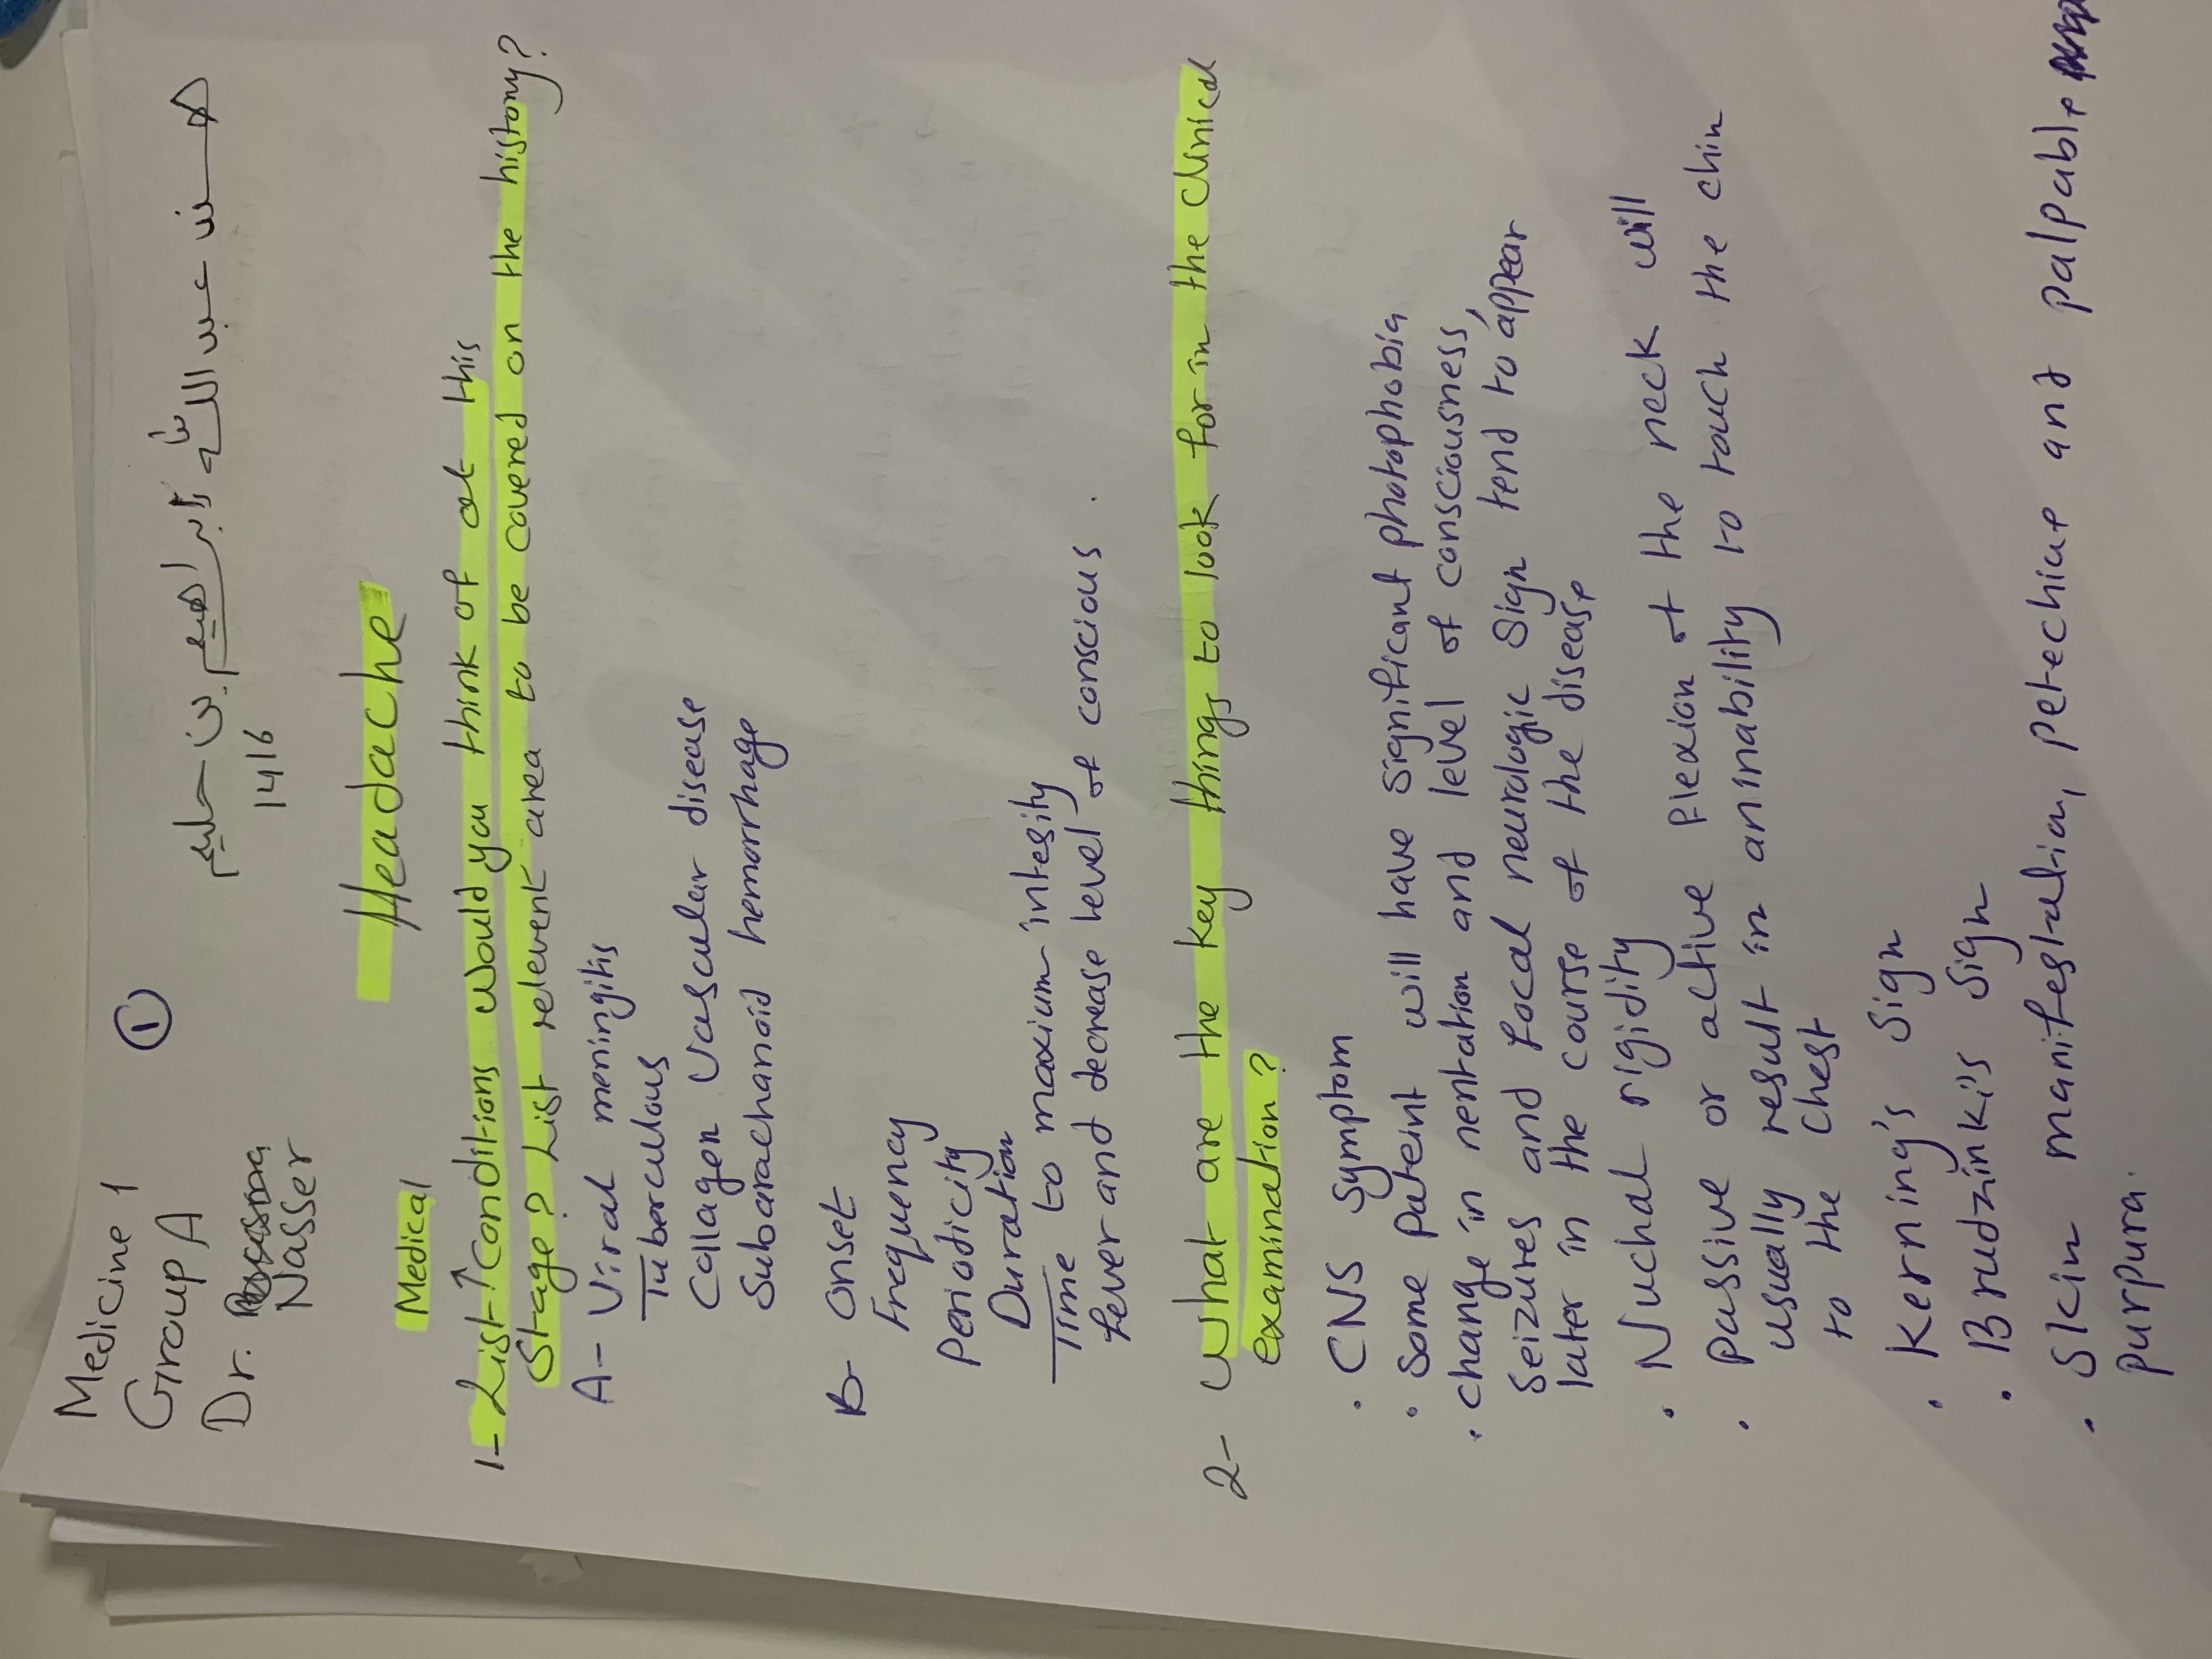 Medicine 1
Group A
Dr.
Nasser
①
عبد الله إبراهيم
1416
Headache
Medical
1- List ↑ Conditions would you think of at this
Stage? List relevent area to be covered on the history?
A- Viral meningitis
Tuberculous
Collagen Vascular disease
Subarachanoid hemorrhage
B- Onset
Frequency
Periodicity
Duration
Time to maxium intesity
fever and decrease level of conscious.
2- What are the key things to look for in the clinical
examination?
• CNS symptom
• Some pateint will have significant photophobia
• change in nentration and level of consciousness,
seizures and focal neurologic sign tend to appear
later in the course of the disease
• Nuchal rigidity
• passive or active flexion of the neck will
usually result in an inability to touch the chin
to the chest
• Kerning's sign
• Brudzinki's sign
• Skin manifestation, petechiae and palpable
purpura.